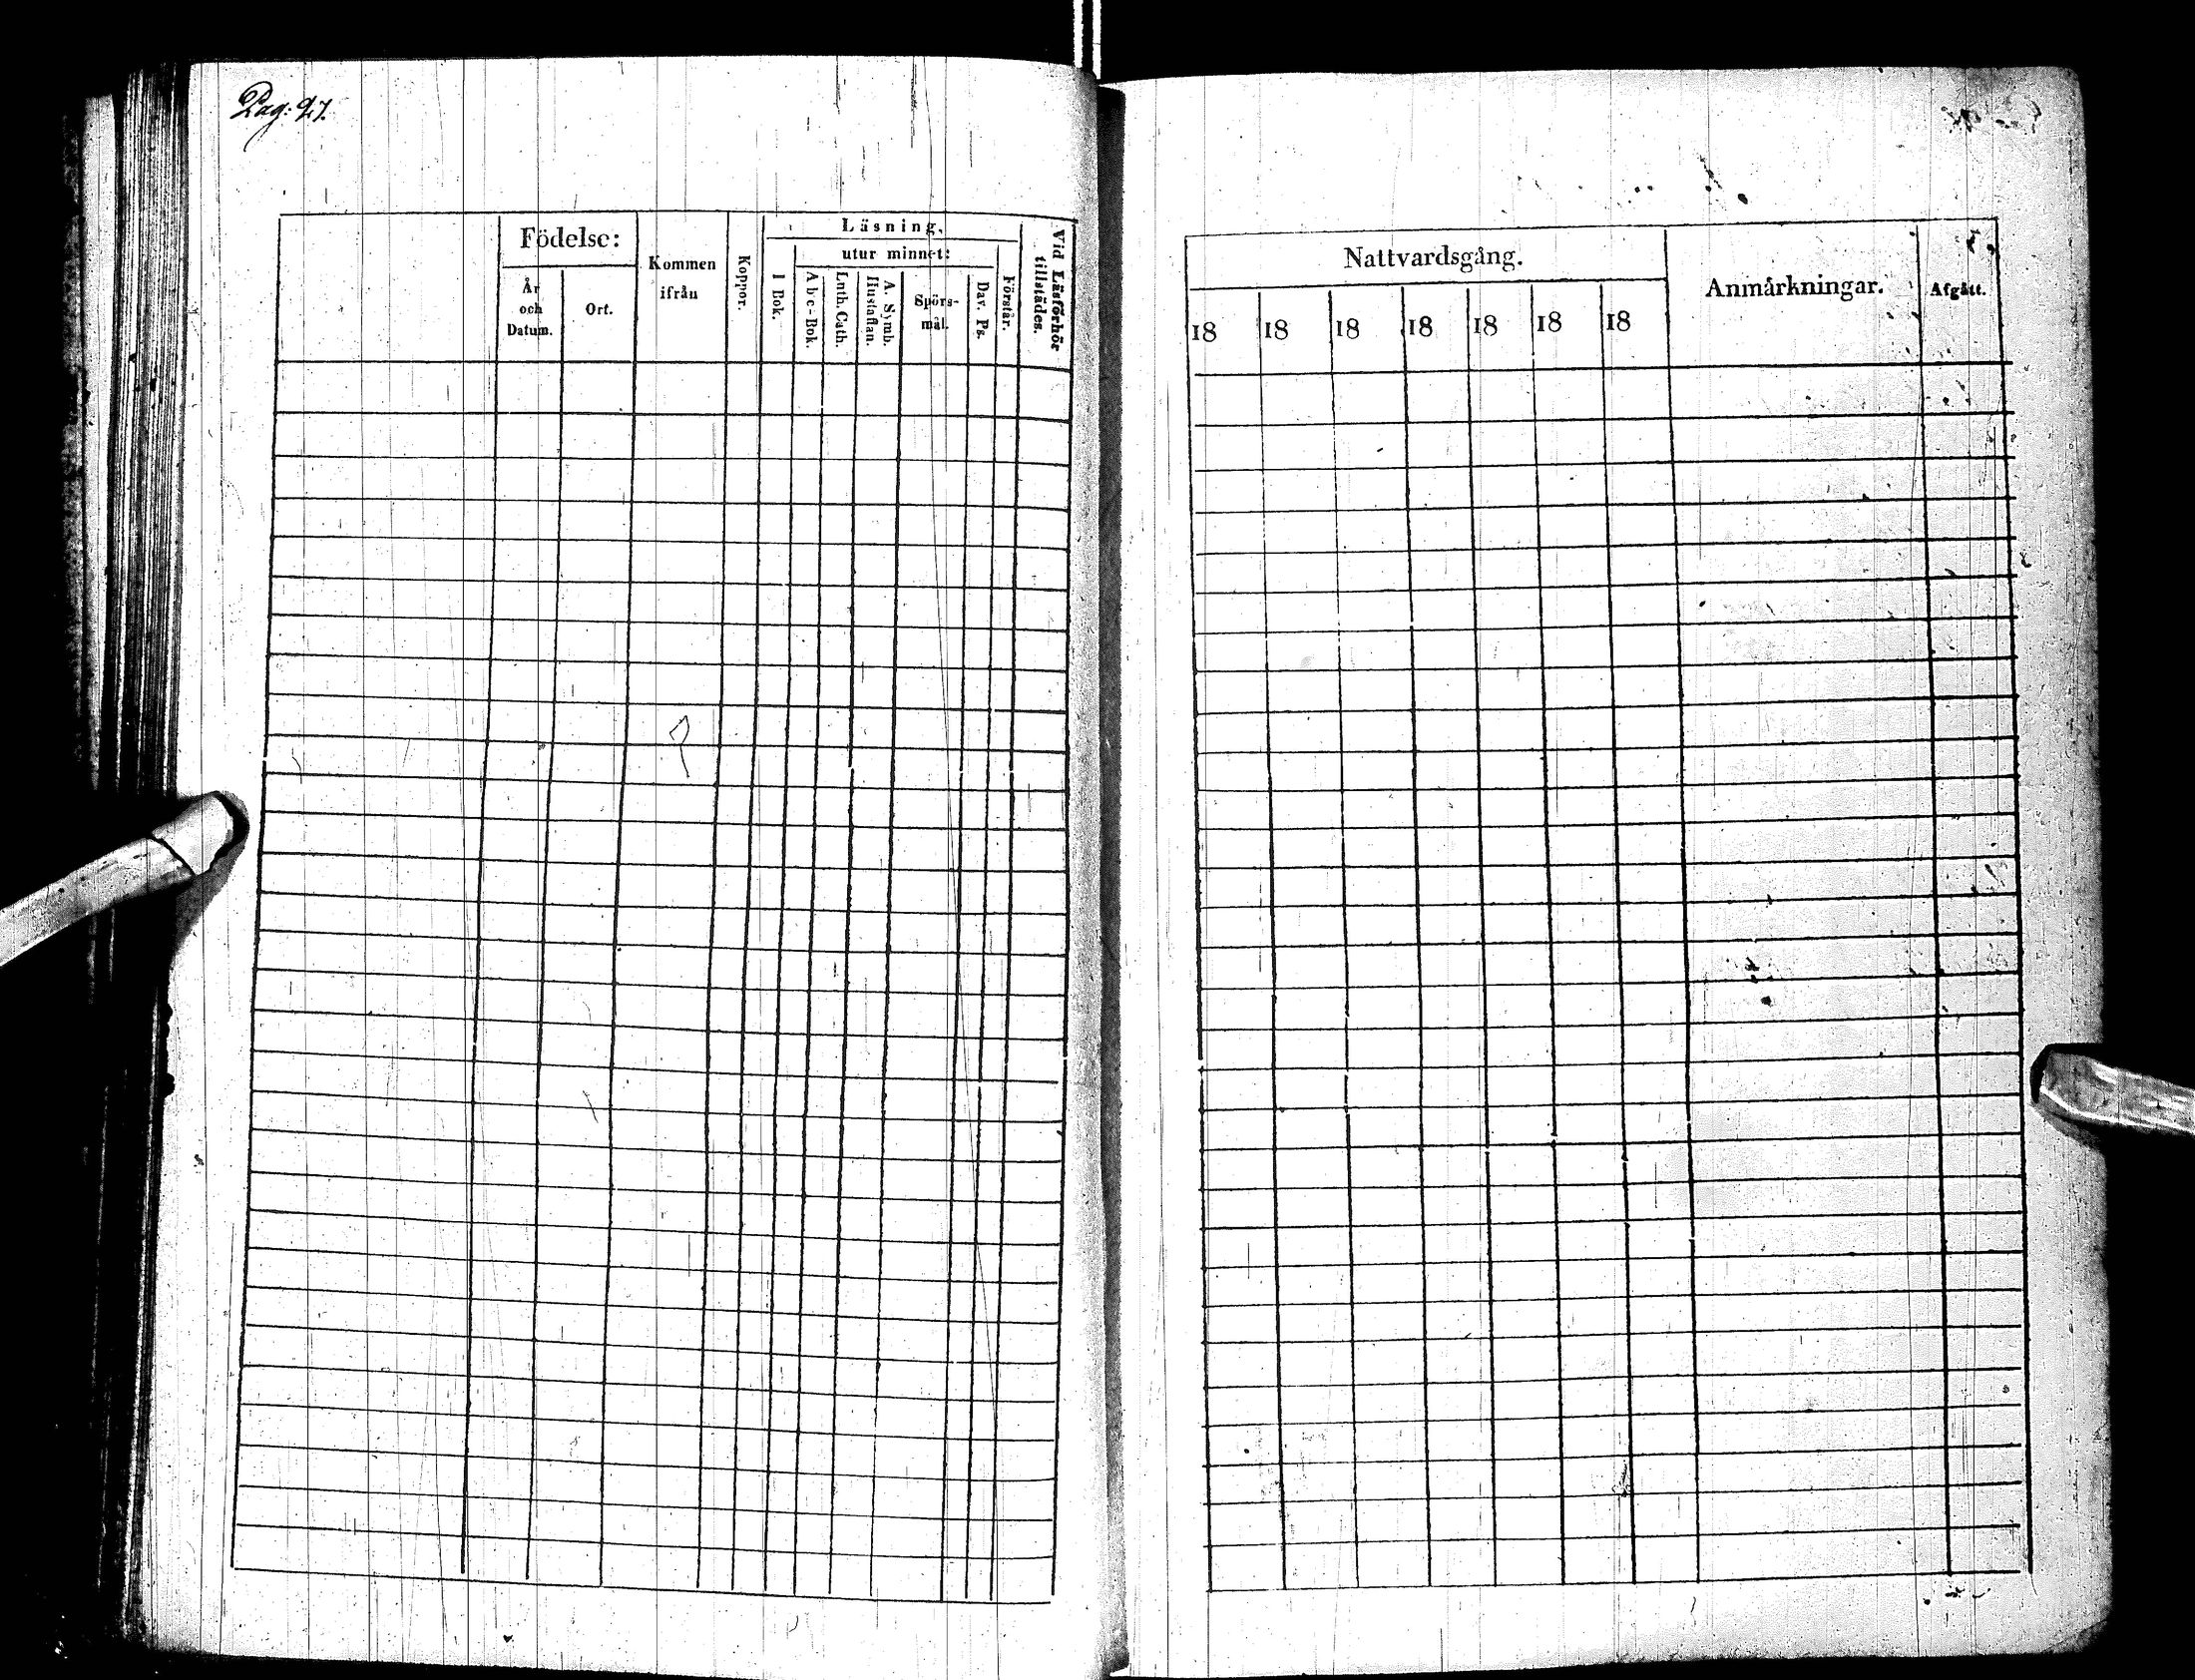 Pag: 27.
Födelse:
År och Datum.
Ort.
Kommen ifrån
Koppor.
Läsning,
utur minnet:
I Bok.
Abc-Bok.
Luth. Cath.
A. Symb. Hustaflan.
Spörs-mål.
Dav. Ps.
Förstår.
Vid Läsförhör tillstädes.
Nattvardsgång.
18 18 18 18 18 18 18
Anmärkningar.
Afgått.